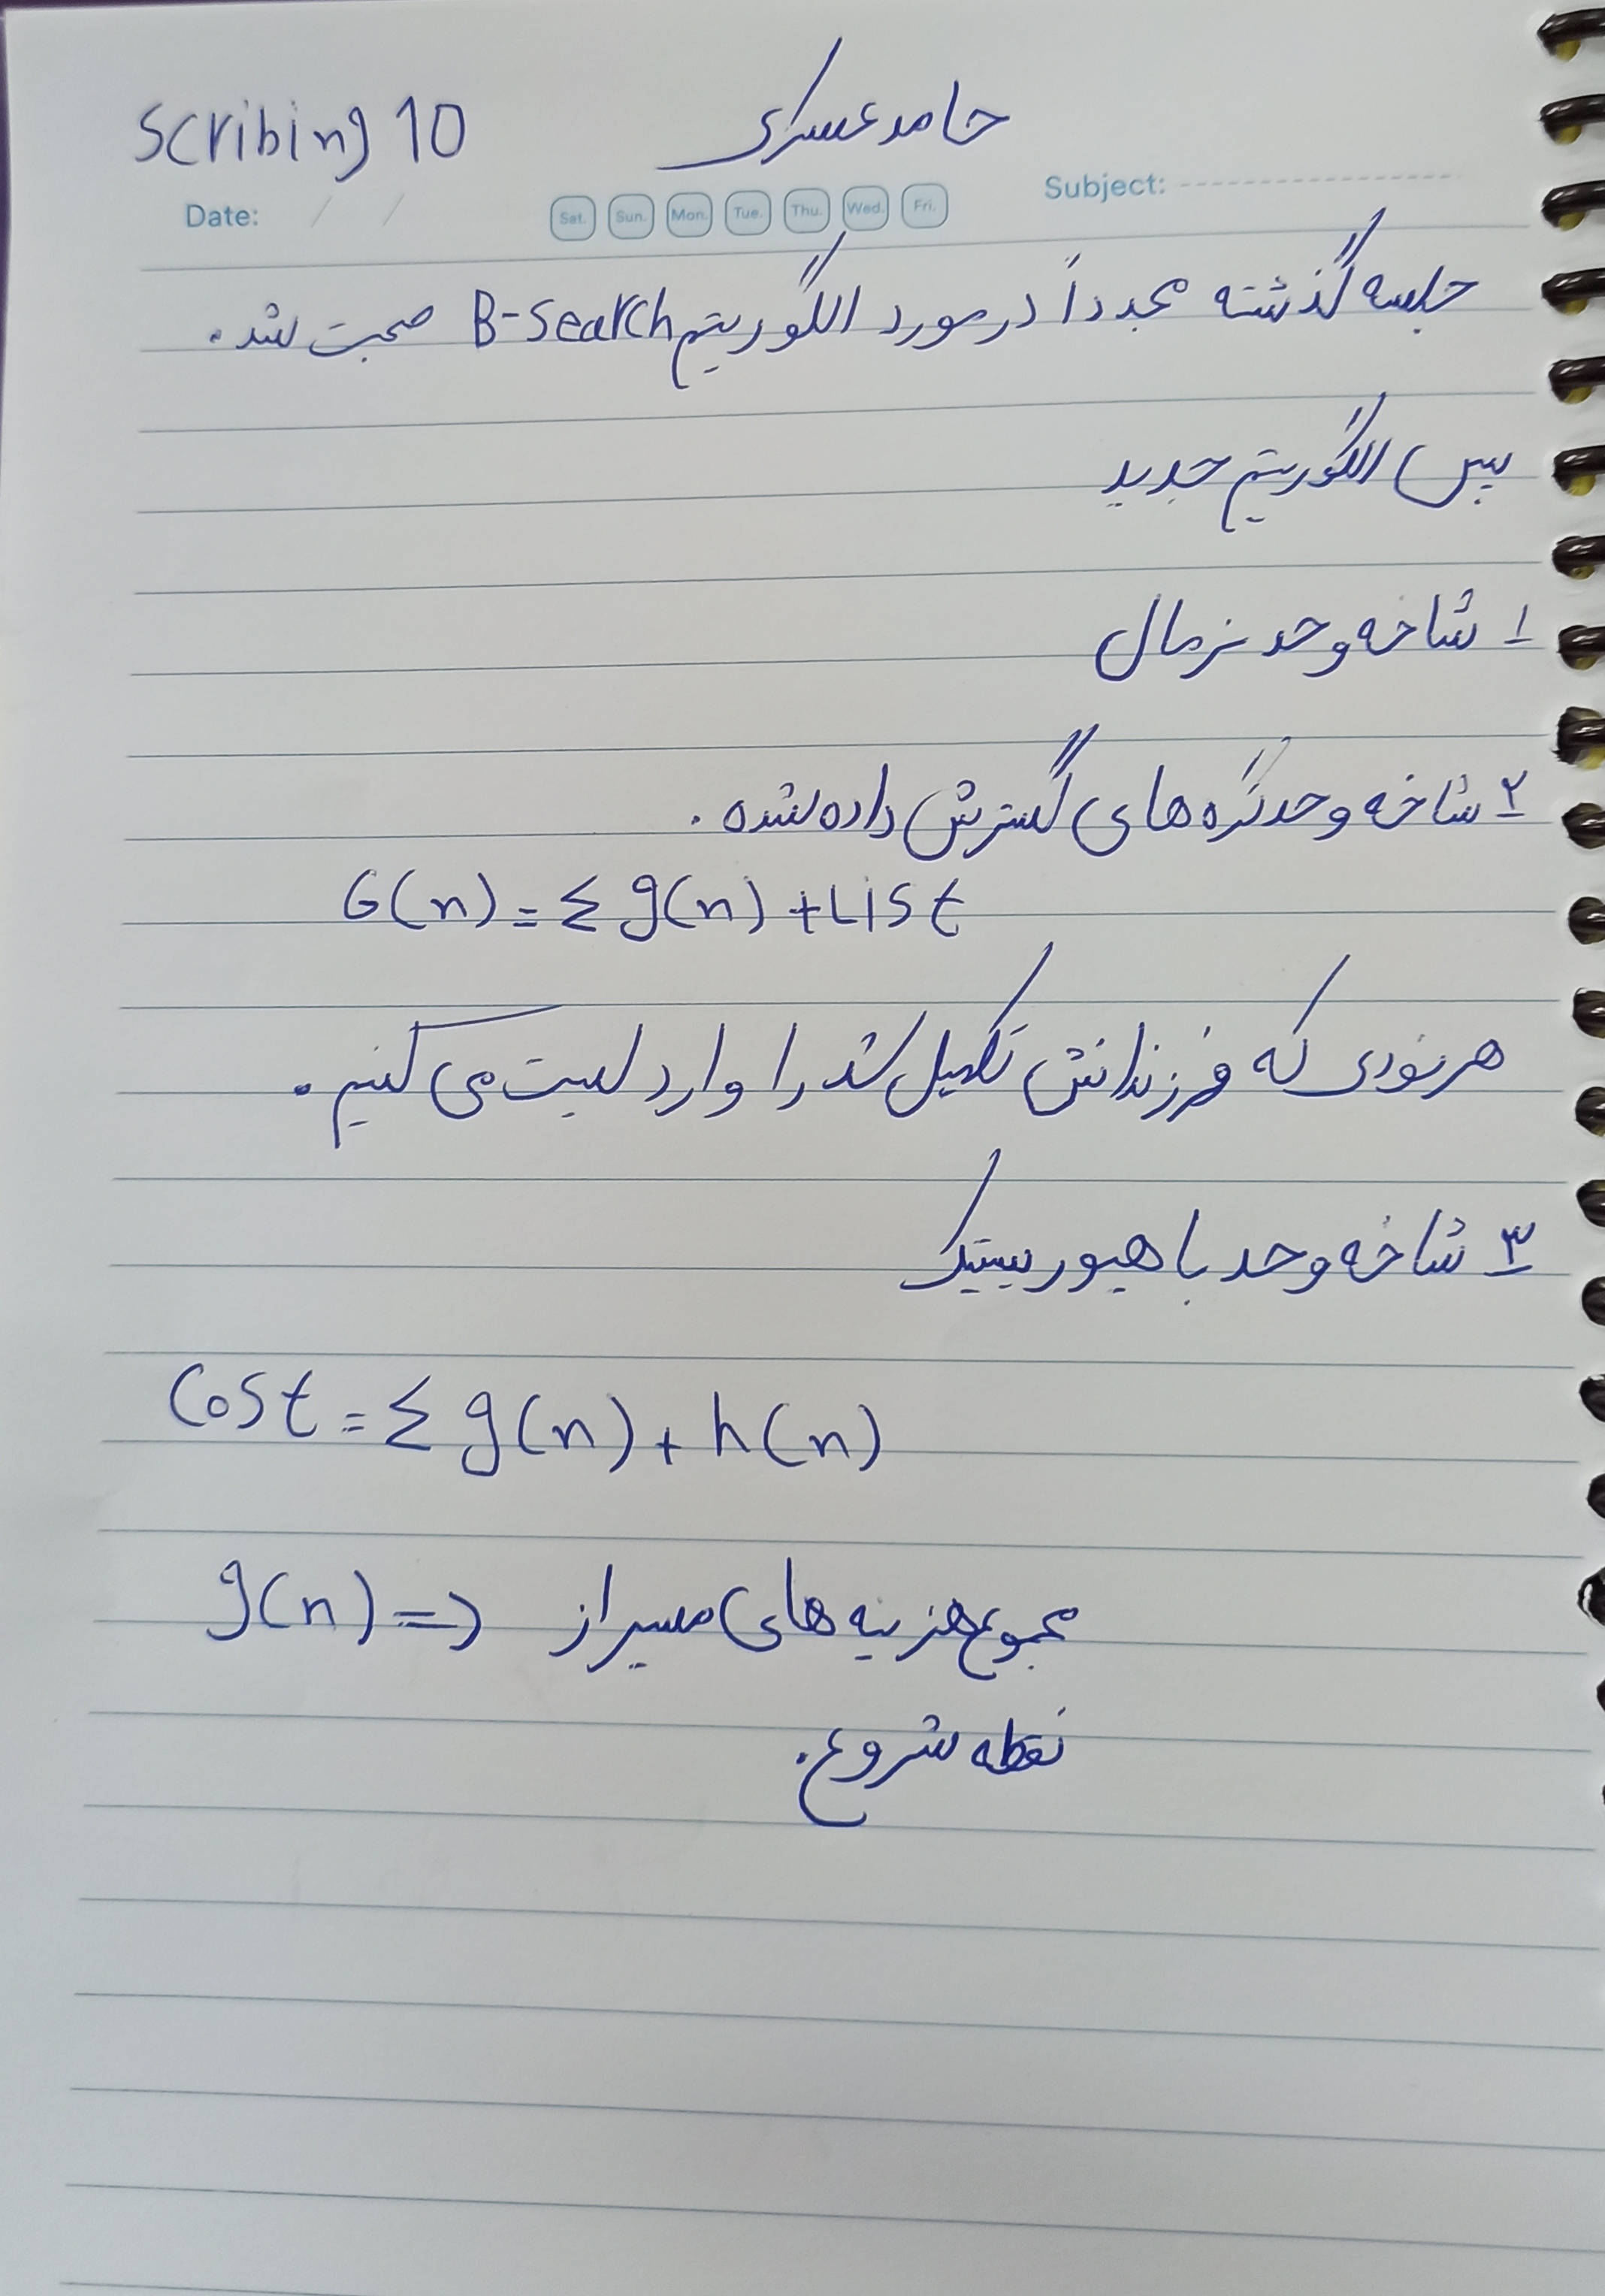 Scribing 10 حامد عسکری
Date: / / Sat. Sun. Mon. Tue. Thu. Wed. Fri. Subject:
جلسه گذشته مجدداً در مورد الگوریتم B-search صحبت شد.
پس الگوریتم جدید
۱ شاخه و حد نرمال
۲ شاخه و حد گره های گسترش داده شده.
G(n) = Σ g(n) + List
هر نودی که فرزندانش تکمیل شد را وارد لیست می کنیم.
۳ شاخه و حد با هیوریستیک
Cost = Σ g(n) + h(n)
g(n) => مجموع هزینه های مسیر از
نقطه شروع.